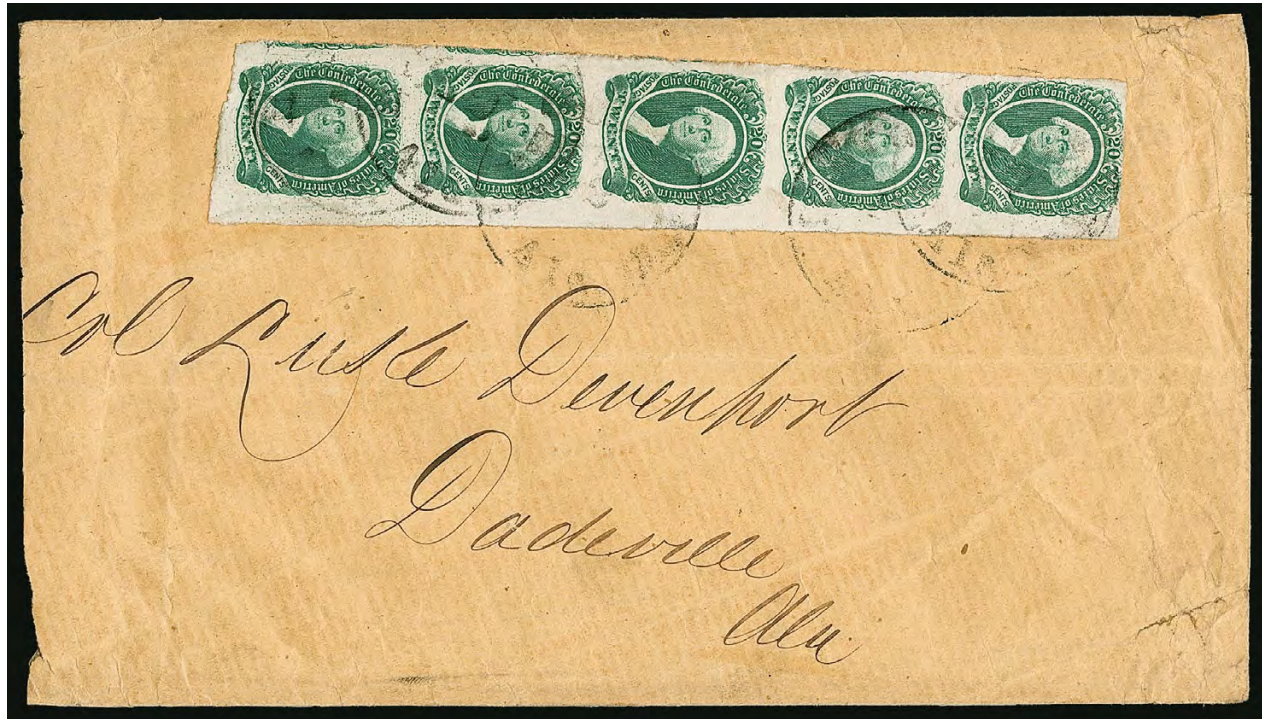 The Confederate States of America TWENTY CENTS 20
The Confederate States of America TWENTY CENTS 20
The Confederate States of America TWENTY CENTS 20
The Confederate States of America TWENTY CENTS 20
The Confederate States of America TWENTY CENTS 20
Ala
Col Lusle Devenport
Dadeville
Ala